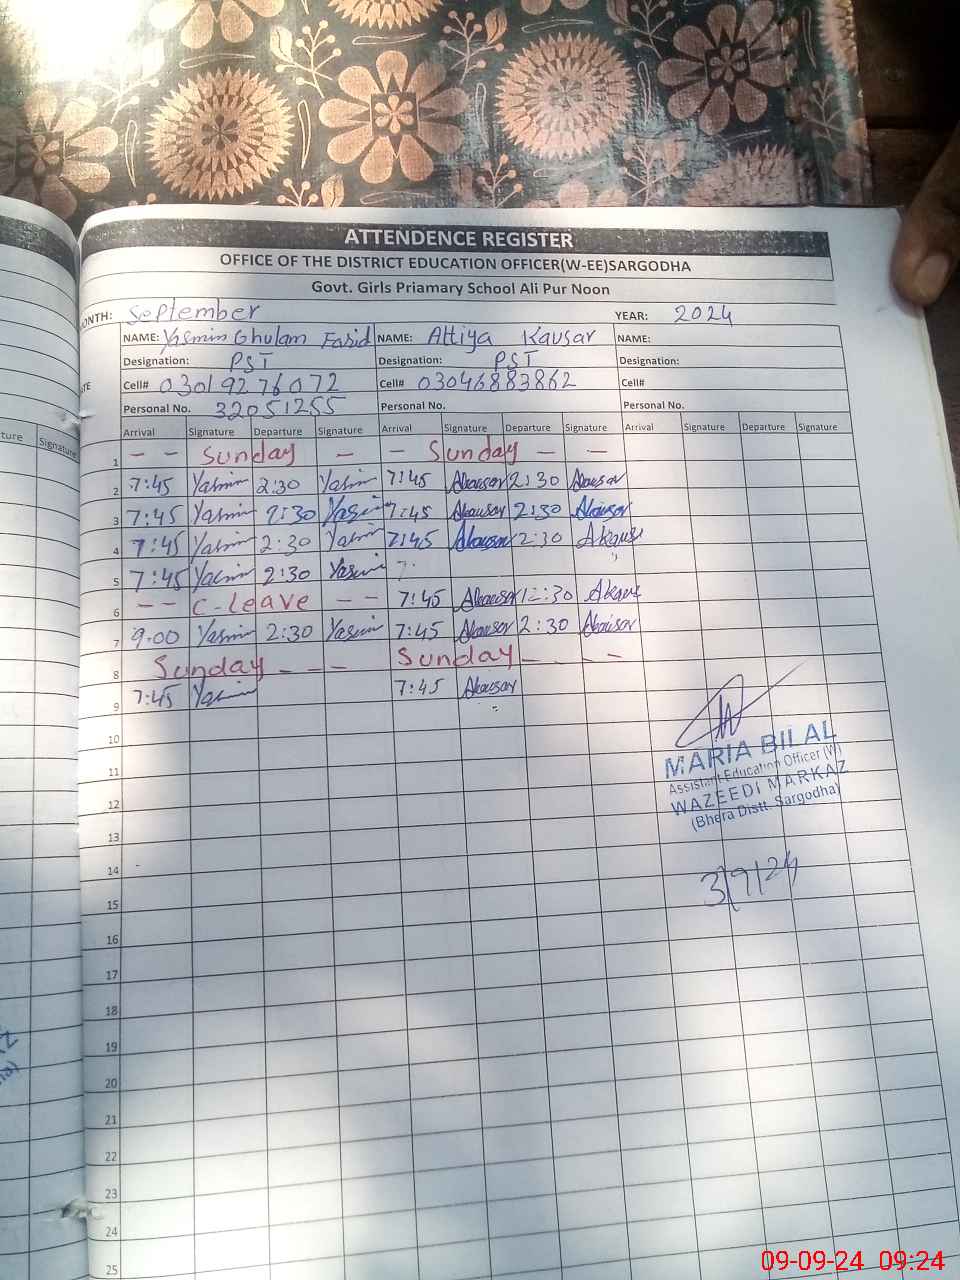 ATTENDENCE REGISTER
OFFICE OF THE DISTRICT EDUCATION OFFICER(W-EE)SARGODHA
Govt. Girls Priamary School Ali Pur Noon
ONTH: September YEAR: 2024
NAME: Yasmin Ghulam Farid NAME: Attiya Kausar NAME:
Designation: PST Designation: PST Designation:
Cell# 03019276072 Cell# 03046883862 Cell#
Personal No. 32051255 Personal No. Personal No.
ture Signature Arrival Signature Departure Signature Arrival Signature Departure Signature Arrival Signature Departure Signature
1 - - Sunday - - Sunday - -
2 7:45 Yasmin 2:30 Yasmin 7:45 Akausar 2:30 Akausar
3 7:45 Yasmin 2:30 Yasmin 7:45 Akausar 2:30 Akausar
4 7:45 Yasmin 2:30 Yasmin 7:45 Akausar 2:30 Akausar
5 7:45 Yasmin 2:30 Yasmin
6 - - C-leave - - 7:45 Akausar 12:30 Akausar
7 9:00 Yasmin 2:30 Yasmin 7:45 Akausar 2:30 Akausar
8 Sunday - - - Sunday - - - -
9 7:45 Yasmin 7:45 Akausar
10
11
12
13
14
15
16
17
18
19
20
21
22
23
24
25
MARIA BILAL
Assistant Education Officer (W)
WAZEEDI MARKAZ
(Bhera Distt. Sargodha)
3/9/24
09-09-24 09:24